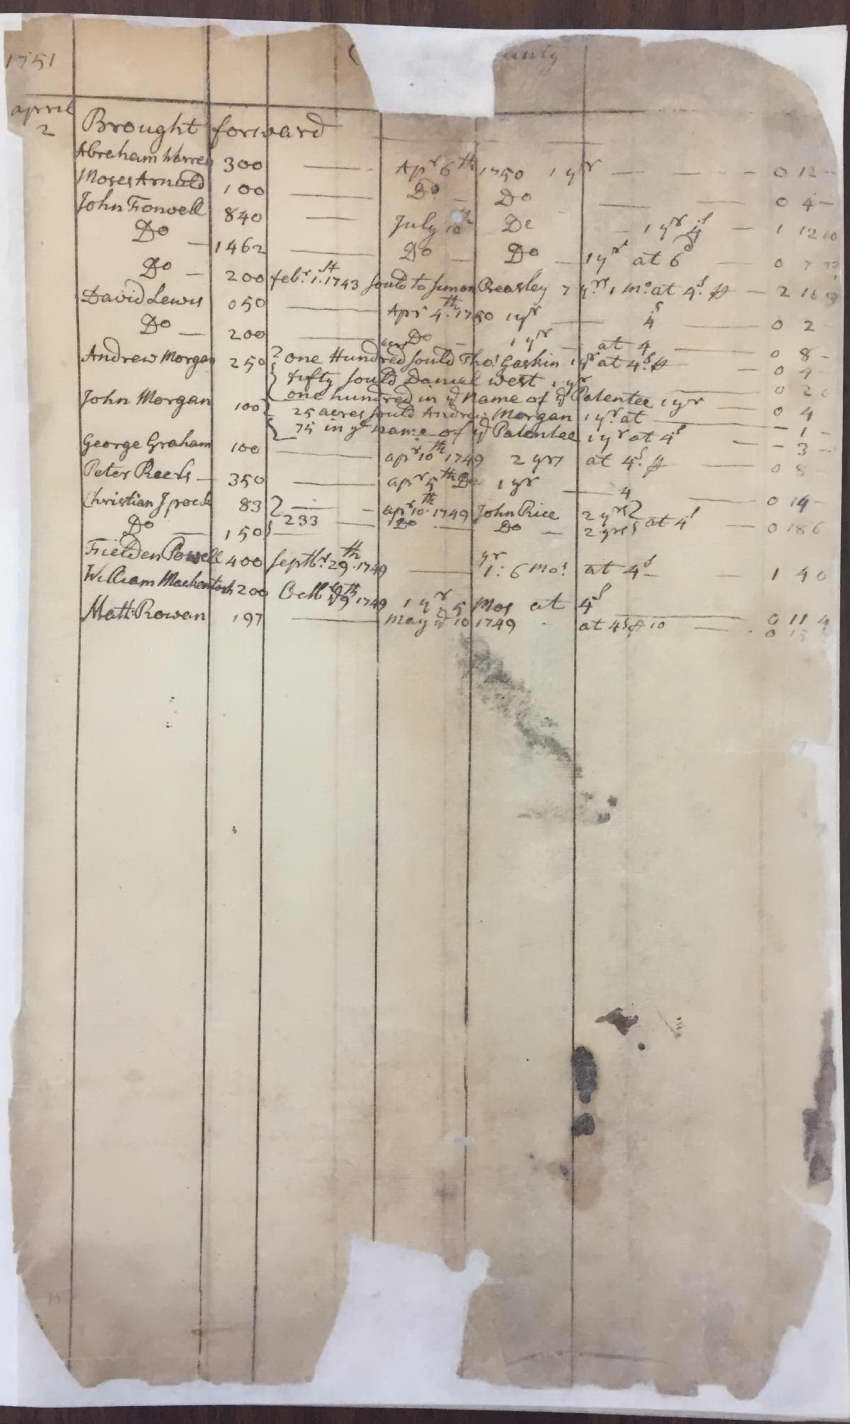 1751 unty
april
2 Brought forward
Abraham Warren 300 — Apr 6th 1750 1 yr — 0 12 -
Moses Arnold 100 — Do Do 0 4 -
John Fonvell 840 — July 10th Do — 1 yr 4s — 1 12 10
Do — 1462 — Do Do 1 yr at 6d — 0 7
Do — 200 febr. 1st 1743 sould to Simon Beasley 7 yrs 1 mo at 4s p — 2 16
David Lewis 050 — Apr 4th 1750 1 yr — 4s — 0 2 -
Do — 200 — Do 1 yr — at 4 — 0 8 -
Andrew Morgan 250 one Hundred sould Tho: Gaskin 1 yr at 4s p — 0 4
fifty sould Daniel West 1 yr — 0 2 0
one hundred in ye Name of ye Patentee 1 yr — 0 4
John Morgan 100 25 acres sould Andrew Morgan 1 yr at — 1 -
75 in ye name of ye Patentee 1 yr at 4s — 3 -
George Graham 100 — apr 10th 1749 2 yrs at 4s p 0 8
Peter Reels — 350 — apr 5th Do 1 yr — 4 — 0 14 -
Christian Ispock 83 — apr 10th 1749 John Rice 2 yrs
Do — 150 233 Do — Do — 2 yrs at 4s — 0 18 6
Fielden Powell 400 Septbr 29th 1749 — yr 1: 6 Mos at 4s — 1 4 0
William Mackentosh 200 Octbr 1749 1 yr 5 Mos at 4s — 0 11 4
Matt Rowan 197 — May ye 10 1749 - at 4s p 10 — 0 15